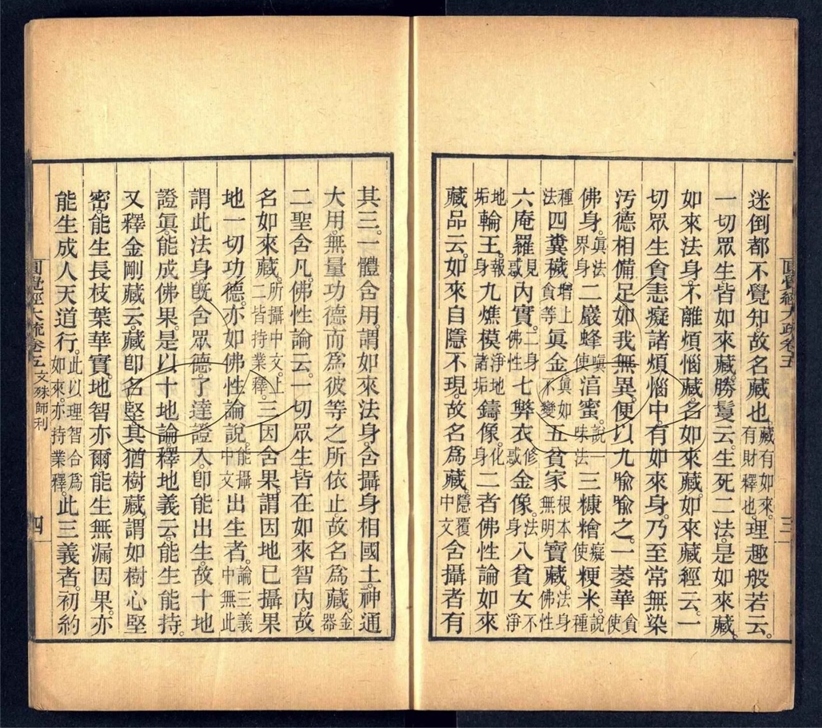 迷倒都不覺知。故名藏也。藏有如來。有財釋也。理趣般若云。
一切眾生皆如來藏。勝鬘云。生死二法。是如來藏。
如來法身。不離煩惱藏。名如來藏。如來藏經云。一
切眾生貪恚癡諸煩惱中。有如來身。乃至常無染
污。德相備足。如我無異。便以九喻喻之。一萎華貪使
佛身。眞法界身二巖蜂瞋使湻蜜。說一味法三糠糩癡使粳米。說種
種法四糞穢增上貪等眞金眞如不變五貧家根本無明寶藏法身佛性
六庵羅見惑內實。二身佛性七弊衣修惑金像。法身八貧女不淨
地垢輪王。報身九燋模諸淨地垢鑄像。化身二者佛性論如來
藏品云。如來自隱不現。故名爲藏。隱覆中文含攝者有
圓覺經大疏卷五
三
其三。一體含用。謂如來法身。含攝身相國土。神通
大用。無量功德。而爲彼等之所依止。故名爲藏。金器
二聖含凡。佛性論云。一切眾生皆在如來智內。故
名如來藏。所攝中文。上二皆持業釋。三因含果。謂因地已攝果
地一切功德。亦如佛性論說。能攝中文出生者。論三義中無此
謂此法身。旣含眾德。了達證入。卽能出生。故十地
證眞。能成佛果。是以十地論釋地義云。能生能持。
又釋金剛藏云。藏卽名堅。其猶樹藏。謂如樹心堅
密。能生長枝葉華實。地智亦爾。能生無漏因果。亦
能生成人天道行。此以理智合爲如來。亦持業釋。此三義者。初約
圓覺經大疏卷五 文殊師利
四